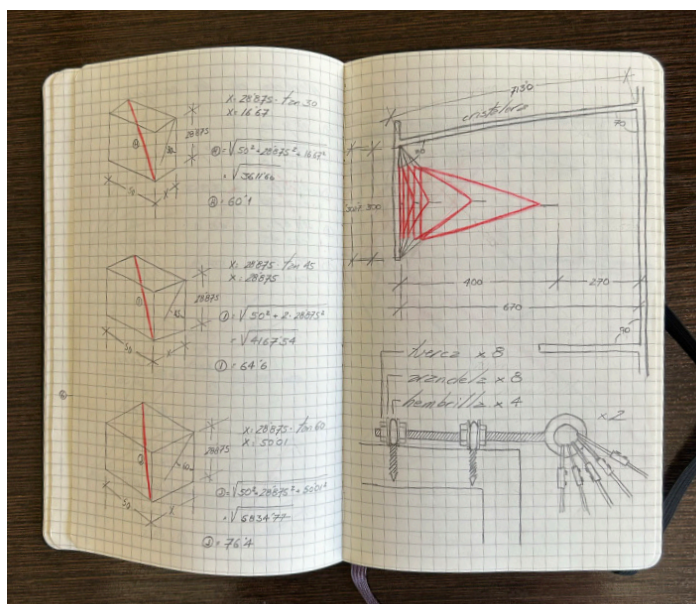 x = 28'875 · tan 30
x = 16'67
28'875
30
50
x
③ = √50² + 28'875² + 16'67²
= √3611'66
③ = 60'1
x = 28'875 · tan 45
x = 28'875
28'875
45
50
x
① = √50² + 2 · 28'875²
= √4167'54
① = 64'6
x = 28'875 · tan 60
x = 50'01
28'875
60
50
x
② = √50² + 28'875² + 50'01²
= √5834'77
② = 76'4
7'30
cristalera
70
30
300
400
270
670
90
tuerca x 8
arandela x 8
hembrilla x 4
x 2